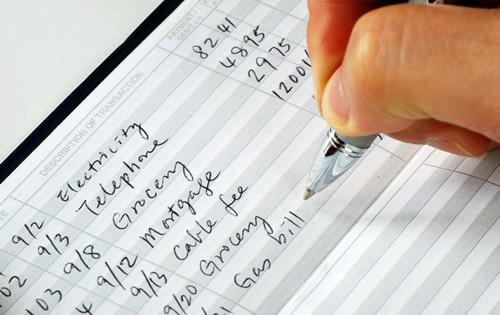 DATE DESCRIPTION OF TRANSACTION PAYMENT
9/2 Electricity 82 41
02 9/3 Telephone 48 95
103 9/8 Grocery 29 75
4 9/12 Mortgage 1200
9/13 Cable fee
9/20 Grocery
Gas bill